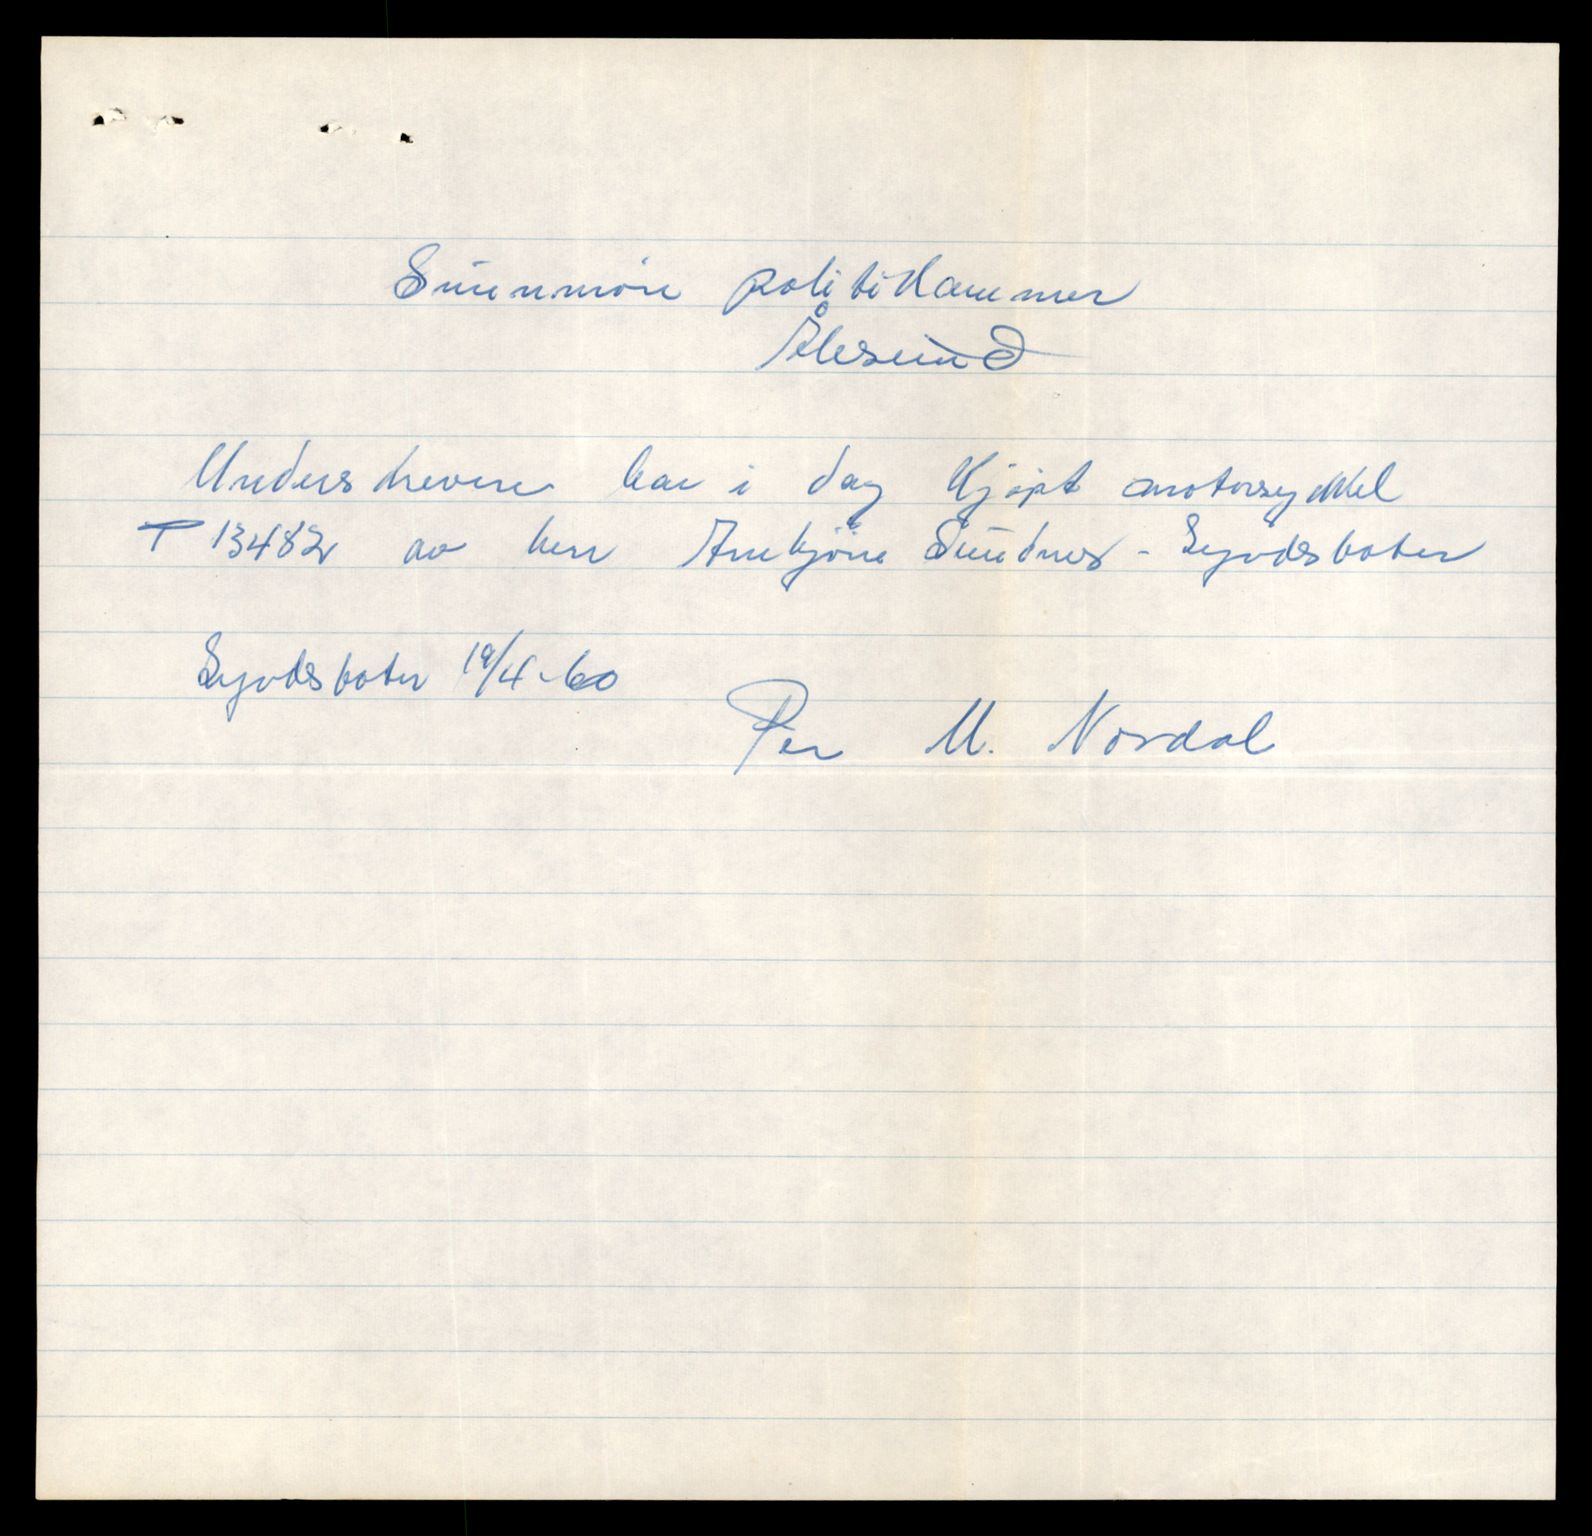 Sunnmøre politikammer
Ålesund
Underskrevne har i dag kjøpt motorsykkel
T 13482 av herr Sundnes - Syvdsbotn
Syvdsbotn 19/4-60
Per M. Nordal